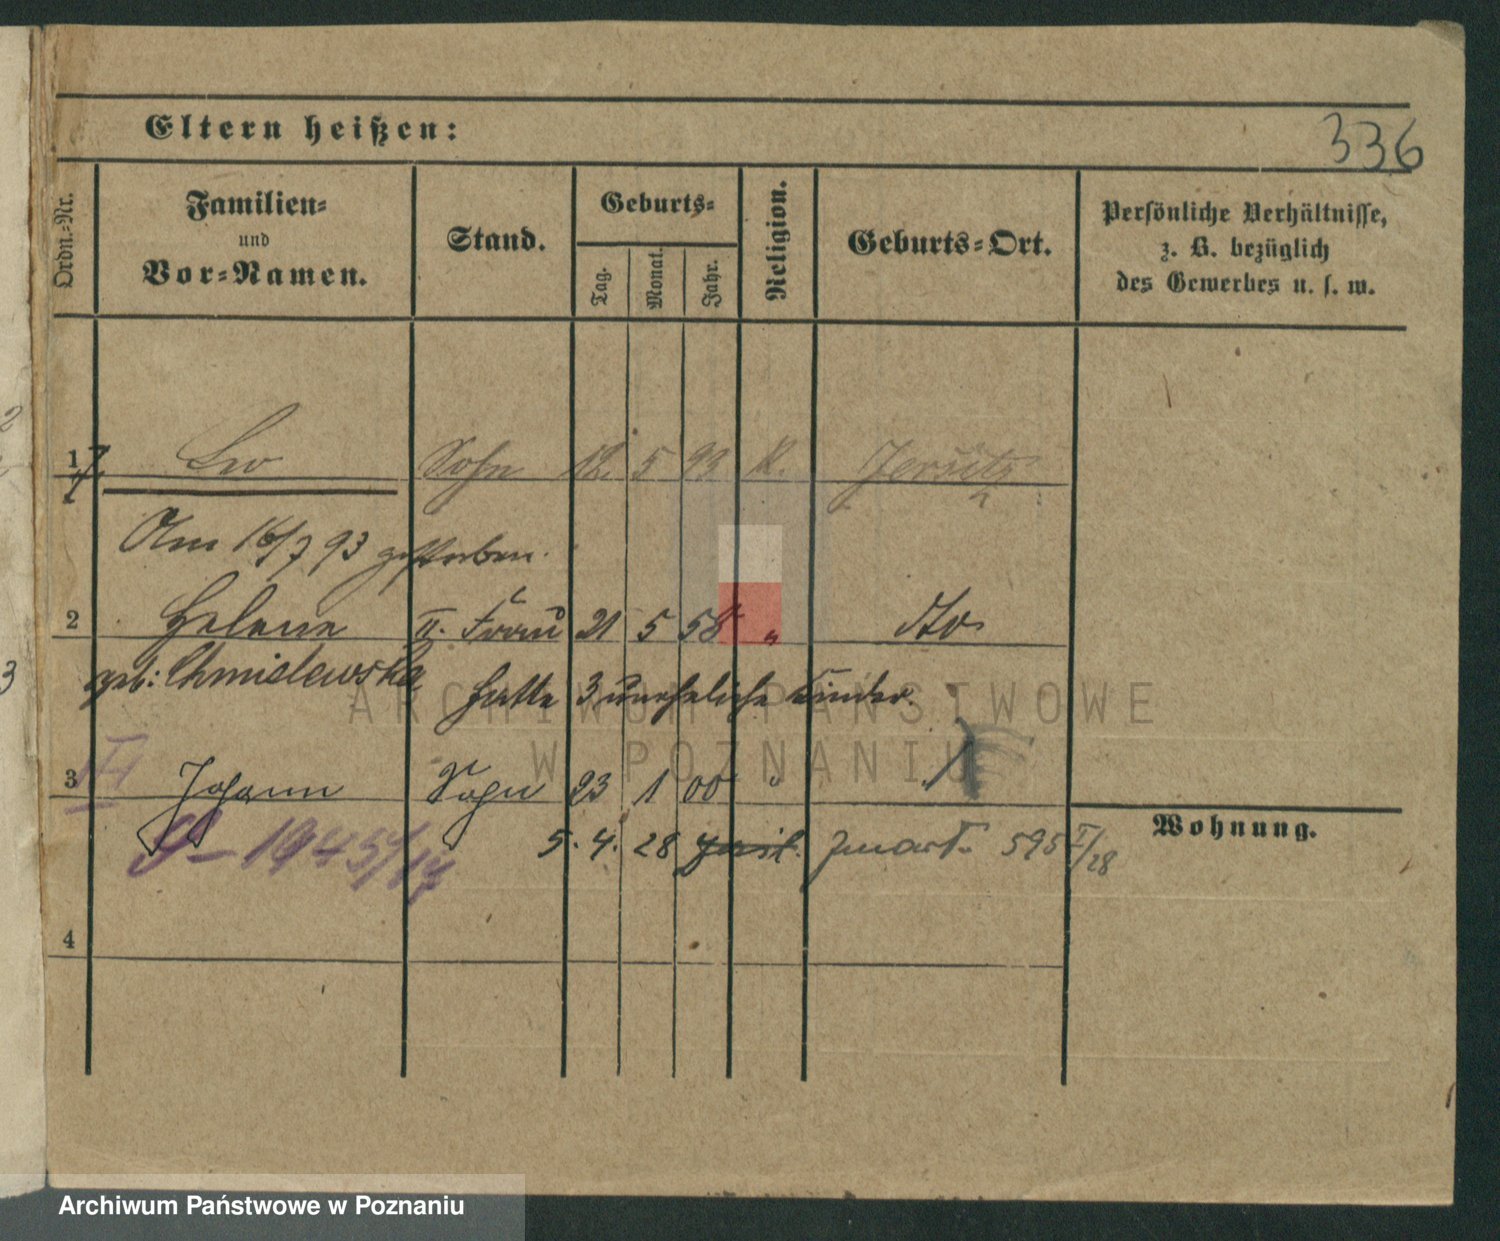 336
Eltern heißen:
Ordn.-Nr.
Familien-
und
Vor-Namen.
Stand.
Geburts-
Tag.
Monat.
Jahr.
Religion.
Geburts-Ort.
Persönliche Verhältnisse,
z. B. bezüglich
des Gewerbes u. s. w.
1 Leo Sohn 12. 5 93 K. Jersitz
Am 16/7 93 gestorben.
2 Helene II. Frau 21 5 58 " dto
geb: Chmielewska hatte 3 uneheliche Kinder.
3 Johann Sohn 23 1 00 "
5. 4. 28 zmarł 595 I/28
Wohnung.
4
ARCHIWUM PAŃSTWOWE
W POZNANIU
Archiwum Państwowe w Poznaniu